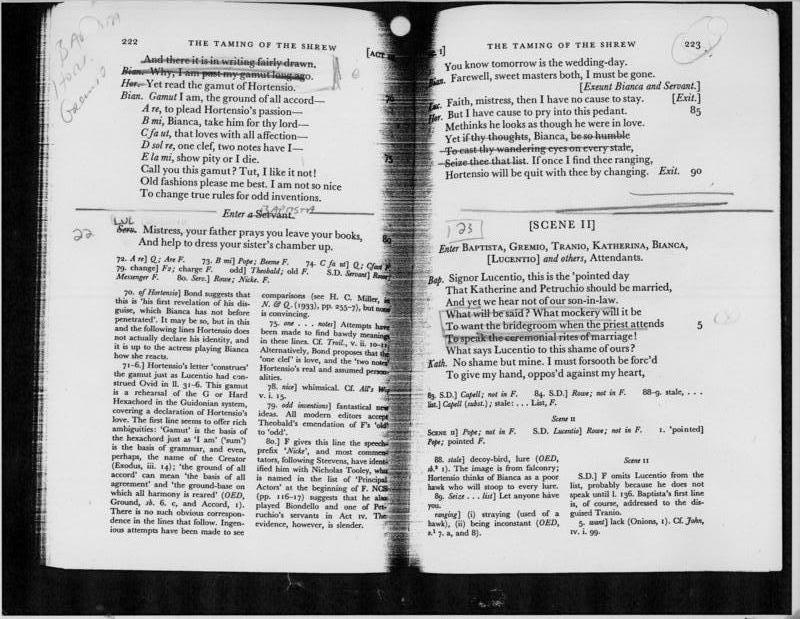 222
THE TAMING OF THE SHREW
[ACT
And there it is in writing fairly drawn.
Bian. Why, I am past my gamut long ago.
Hor. Yet read the gamut of Hortensio.
Bian. Gamut I am, the ground of all accord—
A re, to plead Hortensio's passion—
B mi, Bianca, take him for thy lord—
C fa ut, that loves with all affection—
D sol re, one clef, two notes have I—
75
E la mi, show pity or I die.
Call you this gamut? Tut, I like it not!
Old fashions please me best. I am not so nice
To change true rules for odd inventions.
BAPTISTA
Enter a Servant.
LUC
22
Serv. Mistress, your father prays you leave your books,
80
And help to dress your sister's chamber up.
72. A re] Q; Are F. 73. B mi] Pope; Beeme F. 74. C fa ut] Q; Cfaut F.
79. change] F2; charge F. odd] Theobald; old F. S.D. Servant] Rowe;
Messenger F. 80. Serv.] Rowe; Nicke. F.
70. of Hortensio] Bond suggests that
this is 'his first revelation of his dis-
guise, which Bianca has not before
penetrated'. It may be so, but in this
and the following lines Hortensio does
not actually declare his identity, and
it is up to the actress playing Bianca
how she reacts.
71-6.] Hortensio's letter 'construes'
the gamut just as Lucentio had con-
strued Ovid in ll. 31-6. This gamut
is a rehearsal of the G or Hard
Hexachord in the Guidonian system,
covering a declaration of Hortensio's
love. The first line seems to offer rich
ambiguities: 'Gamut' is the basis of
the hexachord just as 'I am' ('sum')
is the basis of grammar, and even,
perhaps, the name of the Creator
(Exodus, iii. 14); 'the ground of all
accord' can mean 'the basis of all
agreement' and 'the ground-base on
which all harmony is reared' (OED,
Ground, sb. 6. c, and Accord, 1).
There is no such obvious correspon-
dence in the lines that follow. Ingen-
ious attempts have been made to see
comparisons (see H. C. Miller, in
N. & Q. (1933), pp. 255-7), but none
is convincing.
75. one . . . notes] Attempts have
been made to find bawdy meanings
in these lines. Cf. Troil., v. ii. 10-11.
Alternatively, Bond proposes that the
'one clef' is love, and the 'two notes'
Hortensio's real and assumed person-
alities.
78. nice] whimsical. Cf. All's W
v. i. 15.
79. odd inventions] fantastical new
ideas. All modern editors accept
Theobald's emendation of F's 'old'
to 'odd'.
80.] F gives this line the speech-
prefix 'Nicke', and most commen-
tators, following Steevens, have ident-
ified him with Nicholas Tooley, who
is named in the list of 'Principal
Actors' at the beginning of F. NCS
(pp. 116-17) suggests that he also
played Biondello and one of Pet-
ruchio's servants in Act IV. The
evidence, however, is slender.
1]
THE TAMING OF THE SHREW
223
You know tomorrow is the wedding-day.
Bian. Farewell, sweet masters both, I must be gone.
[Exeunt Bianca and Servant.]
Luc. Faith, mistress, then I have no cause to stay. [Exit.]
Hor. But I have cause to pry into this pedant. 85
Methinks he looks as though he were in love.
Yet if thy thoughts, Bianca, be so humble
To cast thy wandering eyes on every stale,
Seize thee that list. If once I find thee ranging,
Hortensio will be quit with thee by changing. Exit. 90
23
[SCENE II]
Enter BAPTISTA, GREMIO, TRANIO, KATHERINA, BIANCA,
[LUCENTIO] and others, Attendants.
Bap. Signor Lucentio, this is the 'pointed day
That Katherine and Petruchio should be married,
And yet we hear not of our son-in-law.
What will be said? What mockery will it be
To want the bridegroom when the priest attends 5
To speak the ceremonial rites of marriage!
What says Lucentio to this shame of ours?
Kath. No shame but mine. I must forsooth be forc'd
To give my hand, oppos'd against my heart,
83. S.D.] Capell; not in F. 84. S.D.] Rowe; not in F. 88-9. stale, . . .
list.] Capell (subst.); stale: . . . List, F.
Scene II
SCENE II] Pope; not in F. S.D. Lucentio] Rowe; not in F. 1. 'pointed]
Pope; pointed F.
88. stale] decoy-bird, lure (OED,
sb.³ 1). The image is from falconry;
Hortensio thinks of Bianca as a poor
hawk who will stoop to every lure.
89. Seize . . . list] Let anyone have
you.
ranging] (i) straying (used of a
hawk), (ii) being inconstant (OED,
v.¹ 7. a, and 8).
Scene II
S.D.] F omits Lucentio from the
list, probably because he does not
speak until l. 136. Baptista's first line
is, of course, addressed to the dis-
guised Tranio.
5. want] lack (Onions, 1). Cf. John,
IV. i. 99.